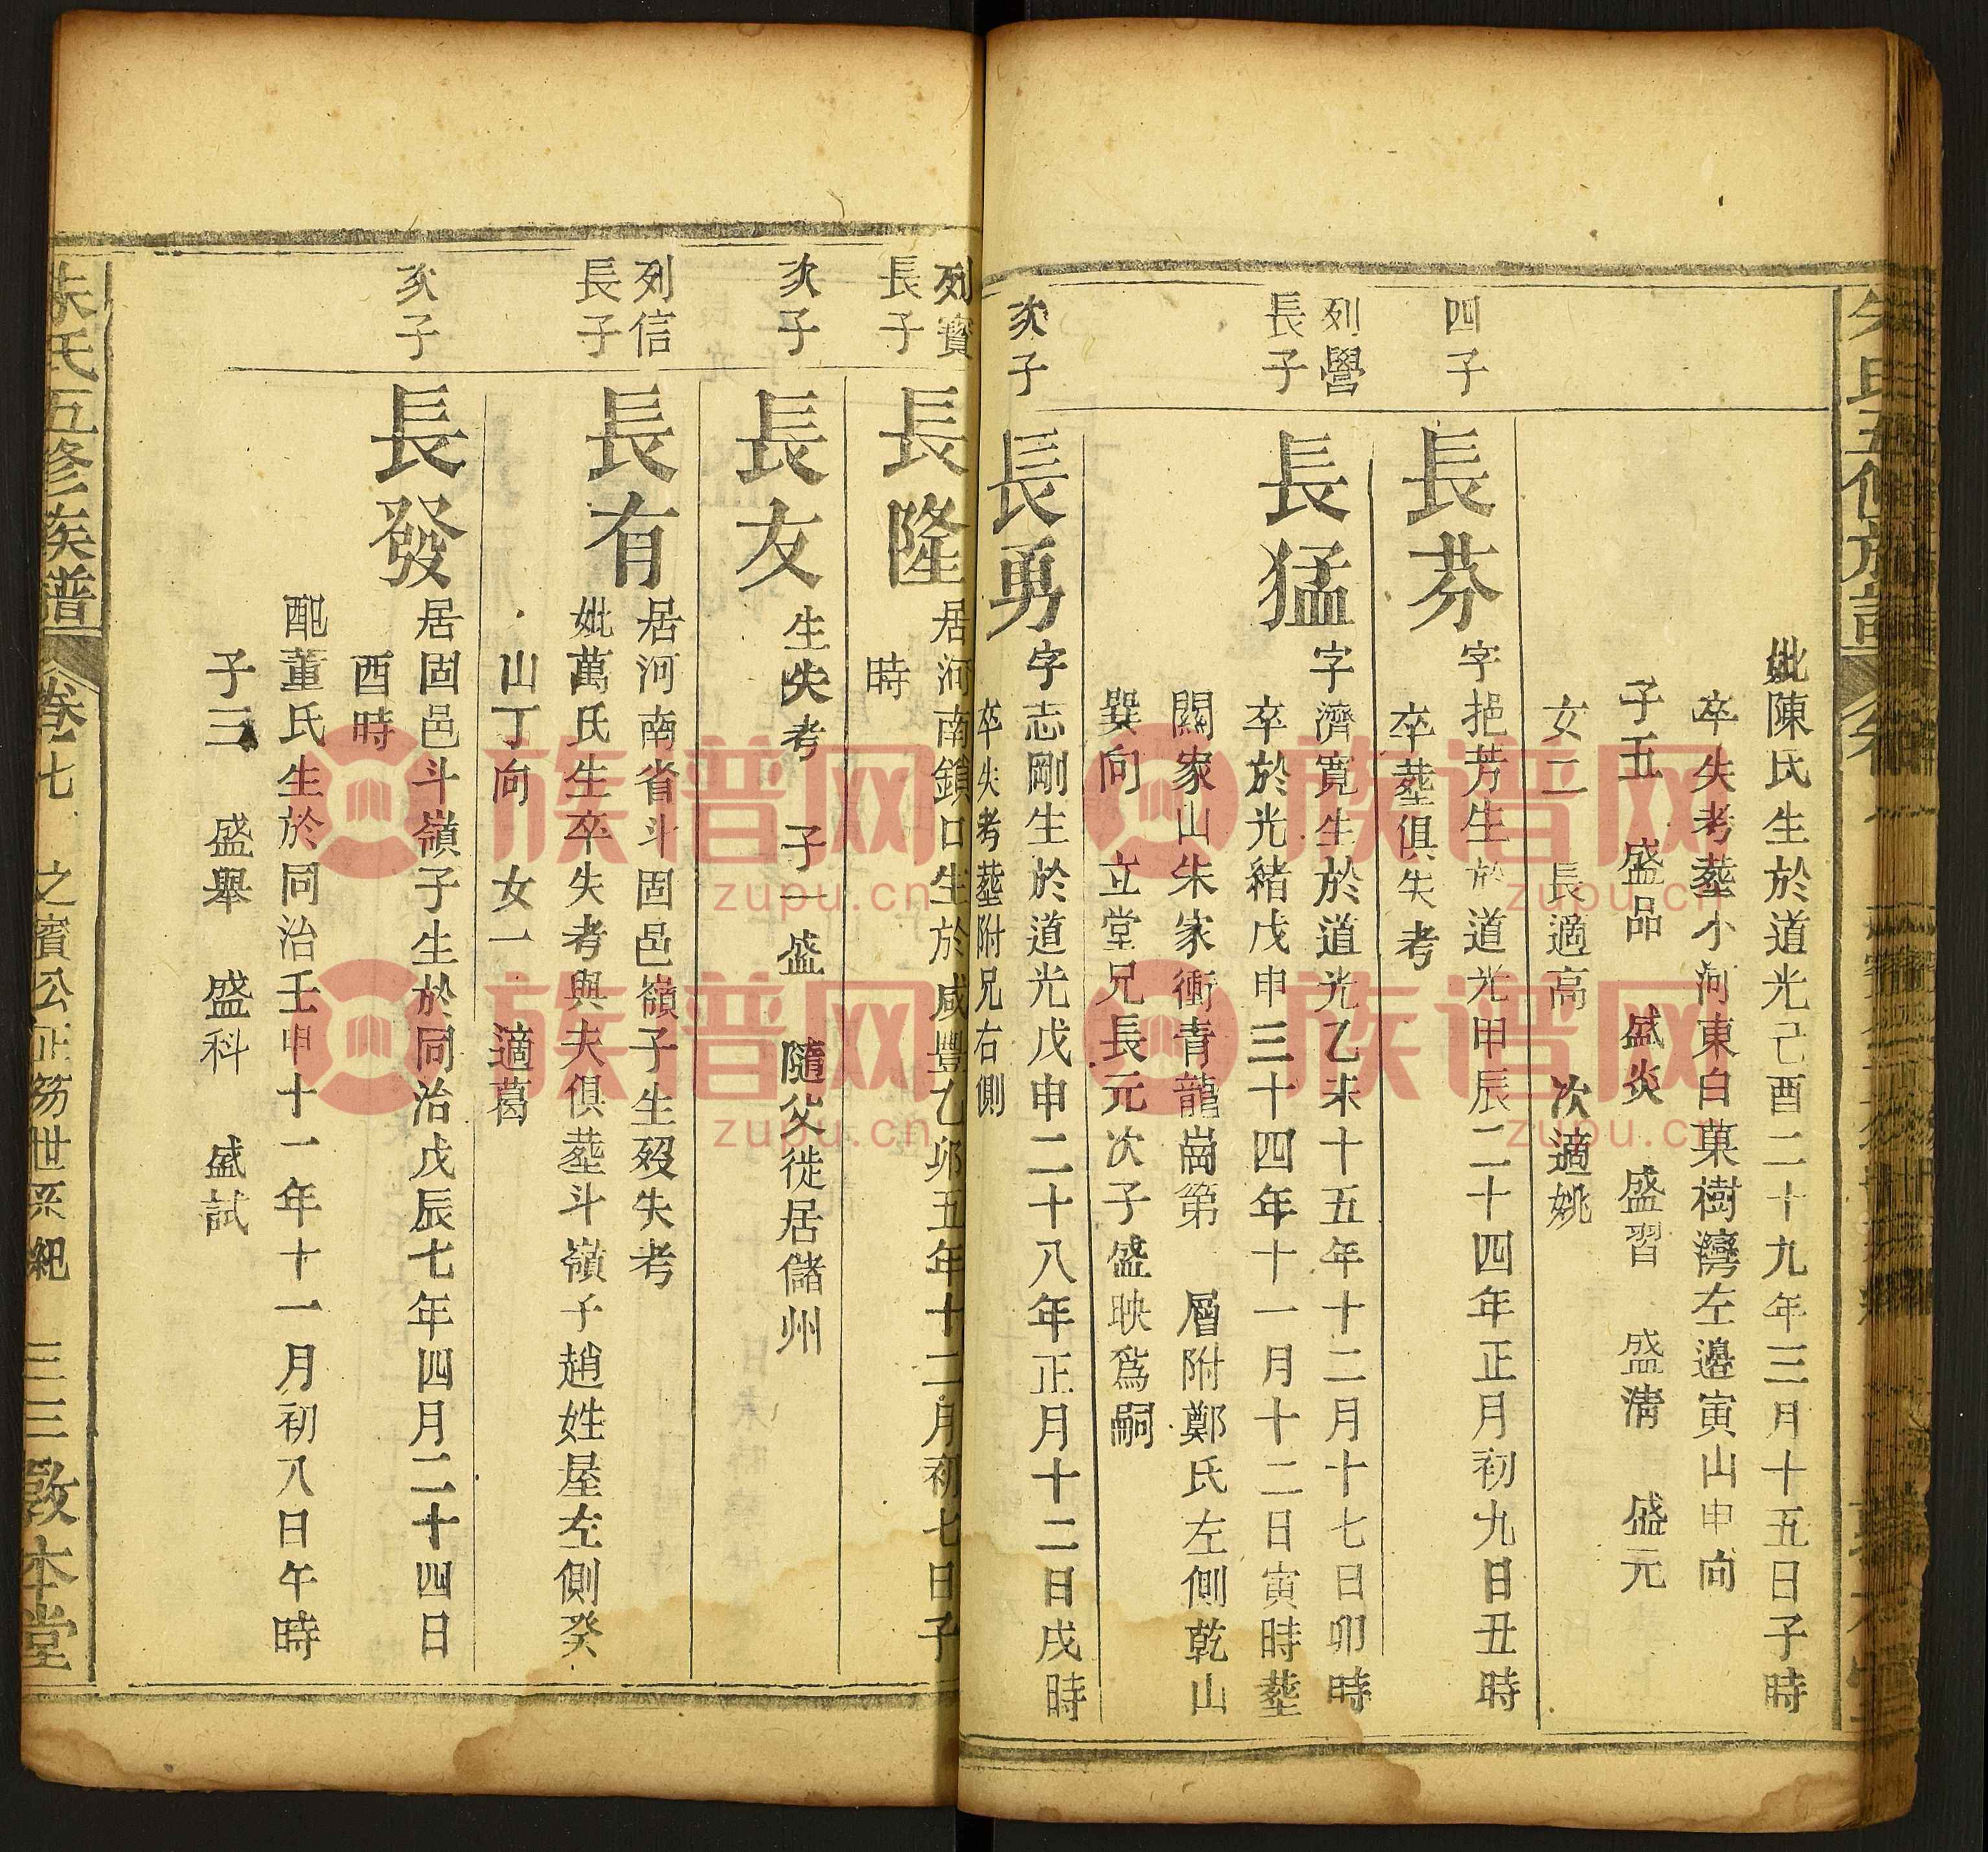 妣陳氏生於道光己酉二十九年三月十五日子時
卒失考葬小河東白菓樹灣左邊寅山申向
子五 盛品 盛炎 盛習 盛清 盛元
女二 長適高 次適姚
四子
長芬
字挹芳生於道光甲辰二十四年正月初九日丑時
卒葬俱失考
列譽
長子
長猛
字濟寬生於道光乙未十五年十二月十七日卯時
卒於光緒戊申三十四年十一月十二日寅時葬
關家山朱家衝青龍崗第 層附鄭氏左側乾山
巽向 立堂兄長元次子盛映爲嗣
次子
長勇
字志剛生於道光戊申二十八年正月十二日戌時
卒失考葬附兄右側
列寶
長子
長隆
居河南鎖口生於咸豐乙卯五年十二月初七日子
時
次子
長友
生失考 子一盛 隨父徙居儲州
列信
長子
長有
居河南省斗固邑嶺子生歿失考
妣萬氏生卒失考與夫俱葬斗嶺子趙姓屋左側癸
山丁向 女一 適葛
次子
長發
居固邑斗嶺子生於同治戊辰七年四月二十四日
酉時
配董氏生於同治壬申十一年十一月初八日午時
子三 盛舉 盛科 盛試
朱氏五修族譜 卷七 之賓公正芴世系紀 三三 敦本堂
族谱网
zupu.cn
族谱网
zupu.cn
族谱网
zupu.cn
族谱网
zupu.cn